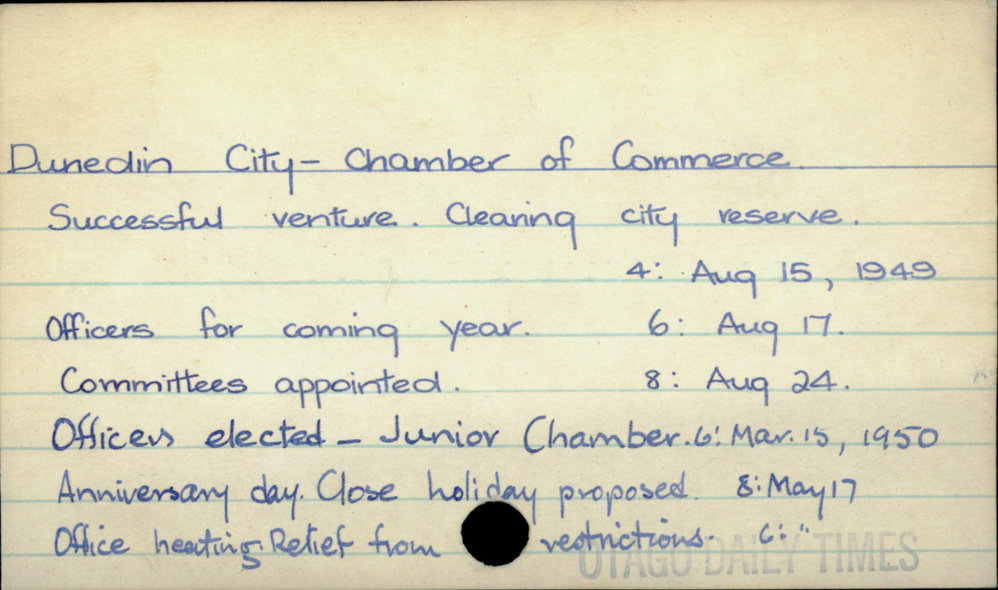 Dunedin City- Chamber of Commerce.
Successful venture. Clearing city reserve.
4: Aug 15, 1949
Officers for coming year. 6: Aug 17.
Committees appointed. 8: Aug 24.
Officers elected - Junior Chamber. 6: Mar. 15, 1950
Anniversary day. Close holiday proposed. 8: May 17
Office heating. Relief from restrictions. 6: "
OTAGO DAILY TIMES